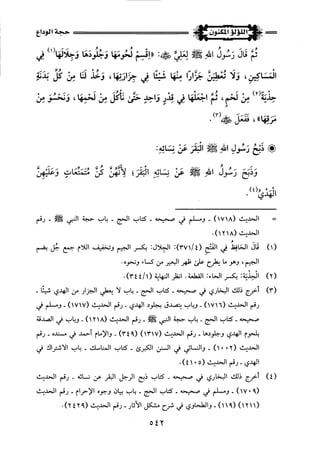 حجة الوداع
اللؤلؤ المكنون
ثُمَّ قَالَ رَسُولُ اللهِ ﷺ لِعَلِيٍّ ﷺ: «اقْسِمْ لُحُومَهَا وَجُلُودَهَا وَجِلَالَهَا(١) فِي
الْمَسَاكِينِ، وَلَا تُعْطِيَنَّ جَزَّارًا مِنْهَا شَيْئًا فِي جِزَارَتِهَا، وَخُذْ لَنَا مِنْ كُلِّ بَدَنَةٍ
حِذْيَةً(٢) مِنْ لَحْمٍ، ثُمَّ اجْعَلْهَا فِي قِدْرٍ وَاحِدٍ حَتَّى نَأْكُلَ مِنْ لَحْمِهَا، وَنَحْسُوَ مِنْ
مَرَقِهَا»، فَفَعَلَ ﷺ(٣).
ذَبْحُ رَسُولِ اللهِ ﷺ الْبَقَرَ عَنْ نِسَائِهِ:
وَذَبَحَ رَسُولُ اللهِ ﷺ عَنْ نِسَائِهِ الْبَقَرَ؛ لِأَنَّهُنَّ كُنَّ مُتَمَتِّعَاتٍ وَعَلَيْهِنَّ
الْهَدْيُ(٤).
= الحديث (١٧١٨) - ومسلم في صحيحه - كتاب الحج - باب حجة النبي ﷺ - رقم
الحديث (١٢١٨).
(١) قَالَ الحَافِظُ فِي الفَتْحِ (٣٧١/٤): الجِلال: بكسر الجيم وتخفيف اللام جمع جُل بضم
الجيم، وهو ما يطرح على ظهر البعير من كساء ونحوه.
(٢) الْحِذْيَةُ: بكسر الحاء: القطعة. انظر النهاية (٣٤٤/١).
(٣) أخرج ذلك البخاري في صحيحه - كتاب الحج - باب لا يعطي الجزار من الهدي شيئًا -
رقم الحديث (١٧١٦) - وباب يتصدق بجلود الهدي - رقم الحديث (١٧١٧) - ومسلم في
صحيحه - كتاب الحج - باب حجة النبي ﷺ - رقم الحديث (١٢١٨) - وباب في الصدقة
بلحوم الهدي وجلودها - رقم الحديث (١٣١٧) (٣٤٩) - والإمام أحمد في مسنده - رقم
الحديث (١٠٠٢) - والنسائي في السنن الكبرى - كتاب المناسك - باب الاشتراك في
الهدي - رقم الحديث (٤١٠٥).
(٤) أخرج ذلك البخاري في صحيحه - كتاب الحج - باب ذبح الرجل البقر عن نسائه - رقم الحديث
(١٧٠٩) - ومسلم في صحيحه - كتاب الحج - باب بيان وجوه الإحرام - رقم الحديث
(١٢١١) (١١٩) - والطحاوي في شرح مشكل الآثار - رقم الحديث (٢٤٢٩).
٥٤٢